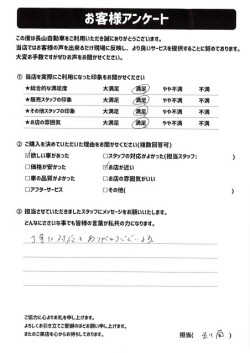 お客様アンケート
この度は長山自動車をご利用いただき誠にありがとうございます。
当店ではお客様の声を出来るだけ現場に反映し、より良いサービスを提供することに努めております。
大変お手数ですがぜひお声をお聞かせください。
① 当店を実際にご利用になった印象をお聞かせください
★総合的な満足度 大満足 満足 やや不満 不満
★販売スタッフの印象 大満足 満足 やや不満 不満
★その他スタッフの印象 大満足 満足 やや不満 不満
★お店の雰囲気 大満足 満足 やや不満 不満
② ご購入を決めていただいた理由をお聞かせください(複数回答可)
☑欲しい車があった □スタッフの対応がよかった(担当スタッフ: )
□価格が安かった ☑お店が近い
□車の品質がよかった □お店の雰囲気がいい
□アフターサービス □その他( )
③ 担当させていただきましたスタッフにメッセージをお願いいたします。
どんなにささいな事でも皆様の言葉が私共の力になります。
丁寧に対応をありがとうございます
ご協力に心よりお礼を申し上げます。
よろしくお引き立てご愛顧のほどお願い申し上げます。
またのご来店を心からお待ちしております。
担当( )